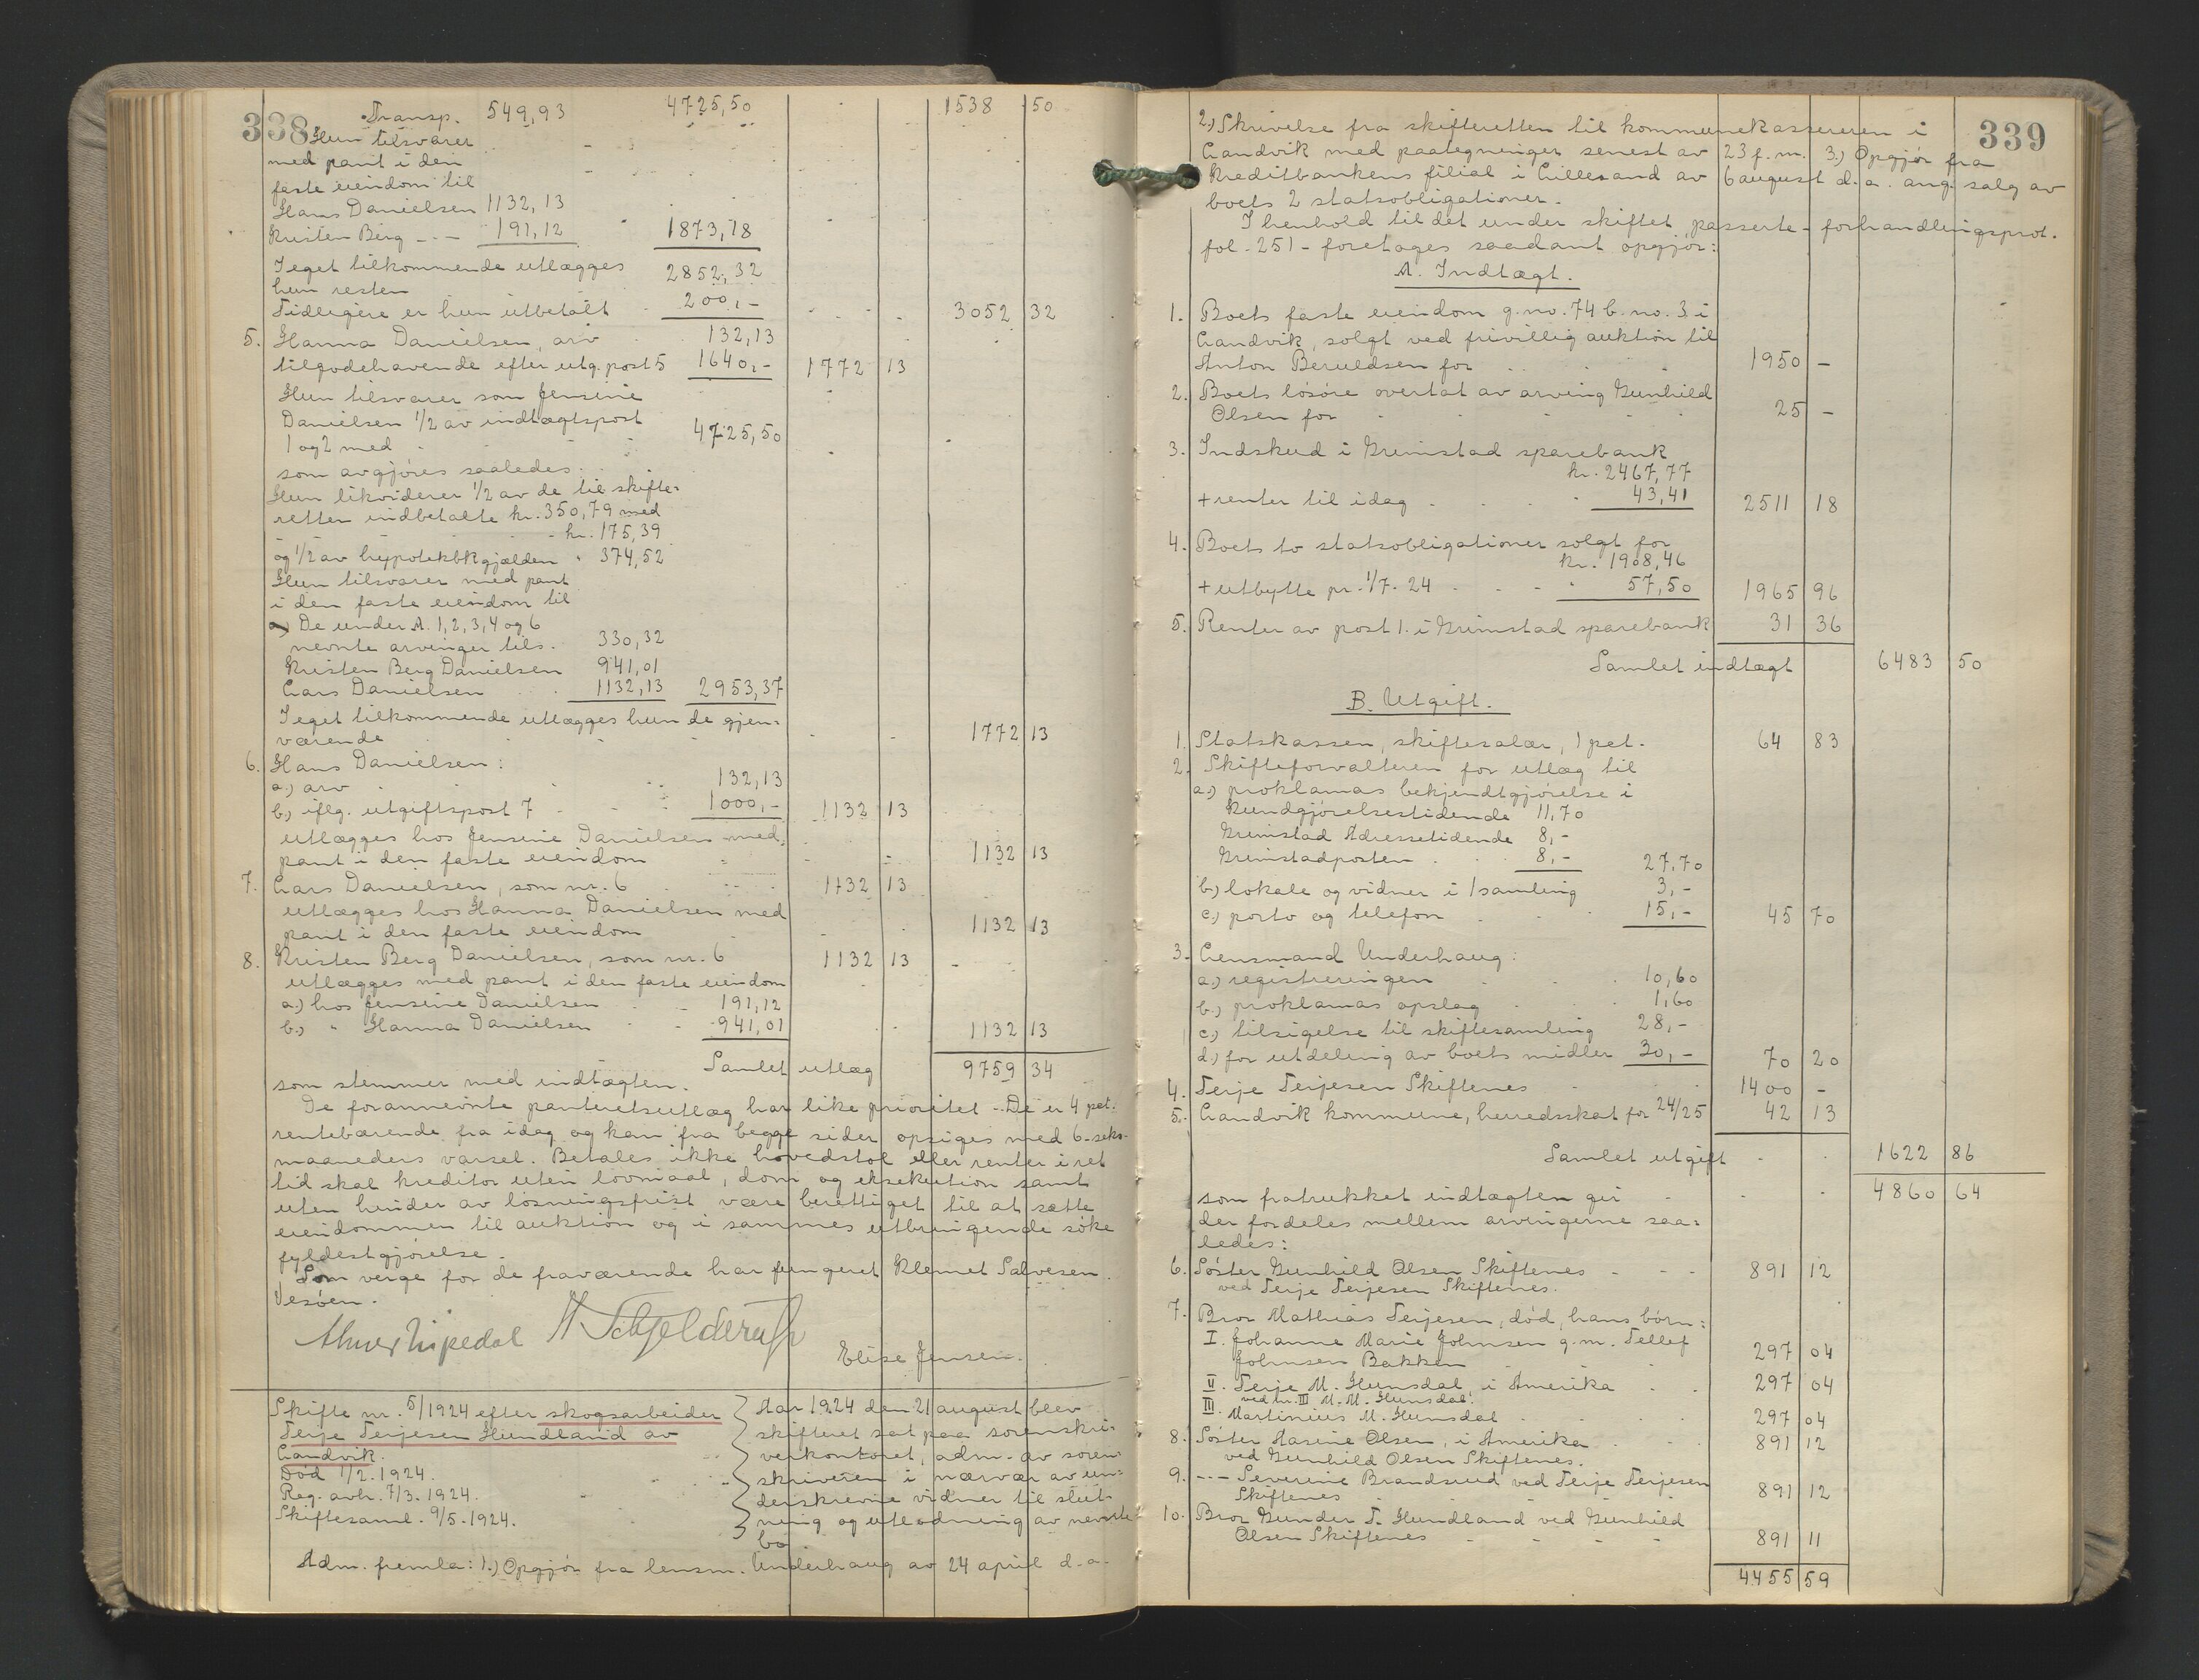 338
Transp. 549,93 4725,50 1538 50
Hun tilsvarer
med pant i den
faste eiendom til
Hans Danielsen 1132,13
Kristen Berg -"- 191,12 1873,18
I eget tilkommende utlægges
hun resten 2852,32
Tidligere er hun utbetalt 200,- 3052 32
5. Hanna Danielsen, arv 132,13
tilgodehavende efter utg. post 5 1640,- 1772 13
Hun tilsvarer som Jensine
Danielsen 1/2 av indtægtspost
1 og 2 med 4725,50
som avgjøres saaledes.
Hun likviderer 1/2 av de til skifte-
retten indbetalte kr. 350,79 med
kr. 175,39
og 1/2 av hypotekbkgjælden " 374,52
Hun tilsvarer med pant
i den faste eiendom til
a) De under A. 1, 2, 3, 4 og 6
nevnte arvinger tils. 330,32
Kristen Berg Danielsen 941,01
Lars Danielsen 1132,13 2953,37
I eget tilkommende utlægges hun de gjen-
værende 1772 13
6. Hans Danielsen:
a.) arv 132,13
b.) iflg. utgiftspost 7 1000,- 1132 13
utlægges hos Jensine Danielsen med
pant i den faste eiendom 1132 13
7. Lars Danielsen, som nr. 6 1132 13
utlægges hos Hanna Danielsen med
pant i den faste eiendom 1132 13
8. Kristen Berg Danielsen, som nr. 6 1132 13
utlægges med pant i den faste eiendom
a.) hos Jensine Danielsen 191,12
b.) " Hanna Danielsen 941,01 1132 13
Samlet utlæg 9759 34
som stemmer med indtægten.
De forannevnte panteretsutlæg har like prioritet - De er 4 pct.
rentebærende fra idag og kan fra begge sider opsiges med 6-seks-
maaneders varsel. Betales ikke hovedstol eller renter i ret
tid skal kreditor uten lovmaal, dom og eksekution samt
uten hinder av løsningsfrist være berettiget til at sætte
eiendommen til auktion og i sammes utbringende søke
fyldestgjørelse.
Som verge for de fraværende har fungeret Klemet Salvesen
Vesøen.
H. Schjelderup
Elise Jensen.
Skifte nr. 5/1924 efter skogsarbeider
Terje Terjesen Hundland av
Landvik.
Død 1/2. 1924.
Reg. avh. 7/3. 1924.
Skiftesaml. 9/5. 1924.
Aar 1924 den 21 august blev
skifteret sat paa sorenskri-
verkontoret, adm. av soren-
skriveren i nærvær av un-
derskrevne vidner til slut-
ning og utlodning av nevnte
bo
Adm. fremla: 1.) Opgjør fra lensm. Underhaug av 24 april d.a.
339
2.) Skrivelse fra skifteretten til kommunekassereren i
Landvik med paategninger senest av 23 f.m. 3.) Opgjør fra
Kreditbankens filial i Lillesand av 6 august d.a. ang. salg av
boets 2 statsobligationer.
I henhold til det under skiftet passerte - forhandlingsprot.
fol. 251 - foretages saadant opgjør:
A. Indtægt.
1. Boets faste eiendom g.no. 74 b.no. 3 i
Landvik, solgt ved frivillig auktion til
Anton Beruldsen for 1950 -
2. Boets løsøre overtat av arving Gunhild
Olsen for 25 -
3. Indskud i Grimstad sparebank
kr. 2467,77
+ renter til idag 43,41 2511 18
4. Boets to statsobligationer solgt for
kr. 1908,46
+ utbytte pr. 1/7. 24 57,50 1965 96
5. Renter av post 1. i Grimstad sparebank 31 36
Samlet indtægt 6483 50
B. Utgift.
1. Statskassen, skiftesalær, 1 pct. 64 83
2. Skifteforvalteren for utlæg til
a.) proklamas bekjendtgjørelse i
Kundgjørelsestidende 11,70
Grimstad Adressetidende 8,-
Grimstadposten 8,- 27,70
b.) lokale og vidner i 1 samling 3,-
c.) porto og telefon 15,- 45 70
3. Lensmand Underhaug:
a.) registreringen 10,60
b.) proklamas opslag 1,60
c.) tilsigelse til skiftesamling 28,-
d.) for utdeling av boets midler 30,- 70 20
4. Terje Terjesen Skiftenes 1400 -
5. Landvik kommune, herredsskat for 24/25 42 13
Samlet utgift 1622 86
som fratrukket indtægten gir 4860 64
der fordeles mellem arvingerne saa-
ledes:
6. Søster Gunhild Olsen Skiftenes 891 12
ved Terje Terjesen Skiftenes.
7. Bror Mathias Terjesen, død, hans børn:
I. Johanne Marie Johnsen g.m. Tellef
Johnsen Bakken 297 04
II. Terje M. Hunsdal, i Amerika 297 04
ved nr. III M. M. Hunsdal.
III. Martinius M. Hunsdal 297 04
8. Søster Aasine Olsen, i Amerika 891 12
ved Gunhild Olsen Skiftenes.
9. -"- Severine Brandsrud ved Terje Terjesen
Skiftenes 891 12
10. Bror Gunder T. Hundland ved Gunhild
Olsen Skiftenes 891 11
4455 59